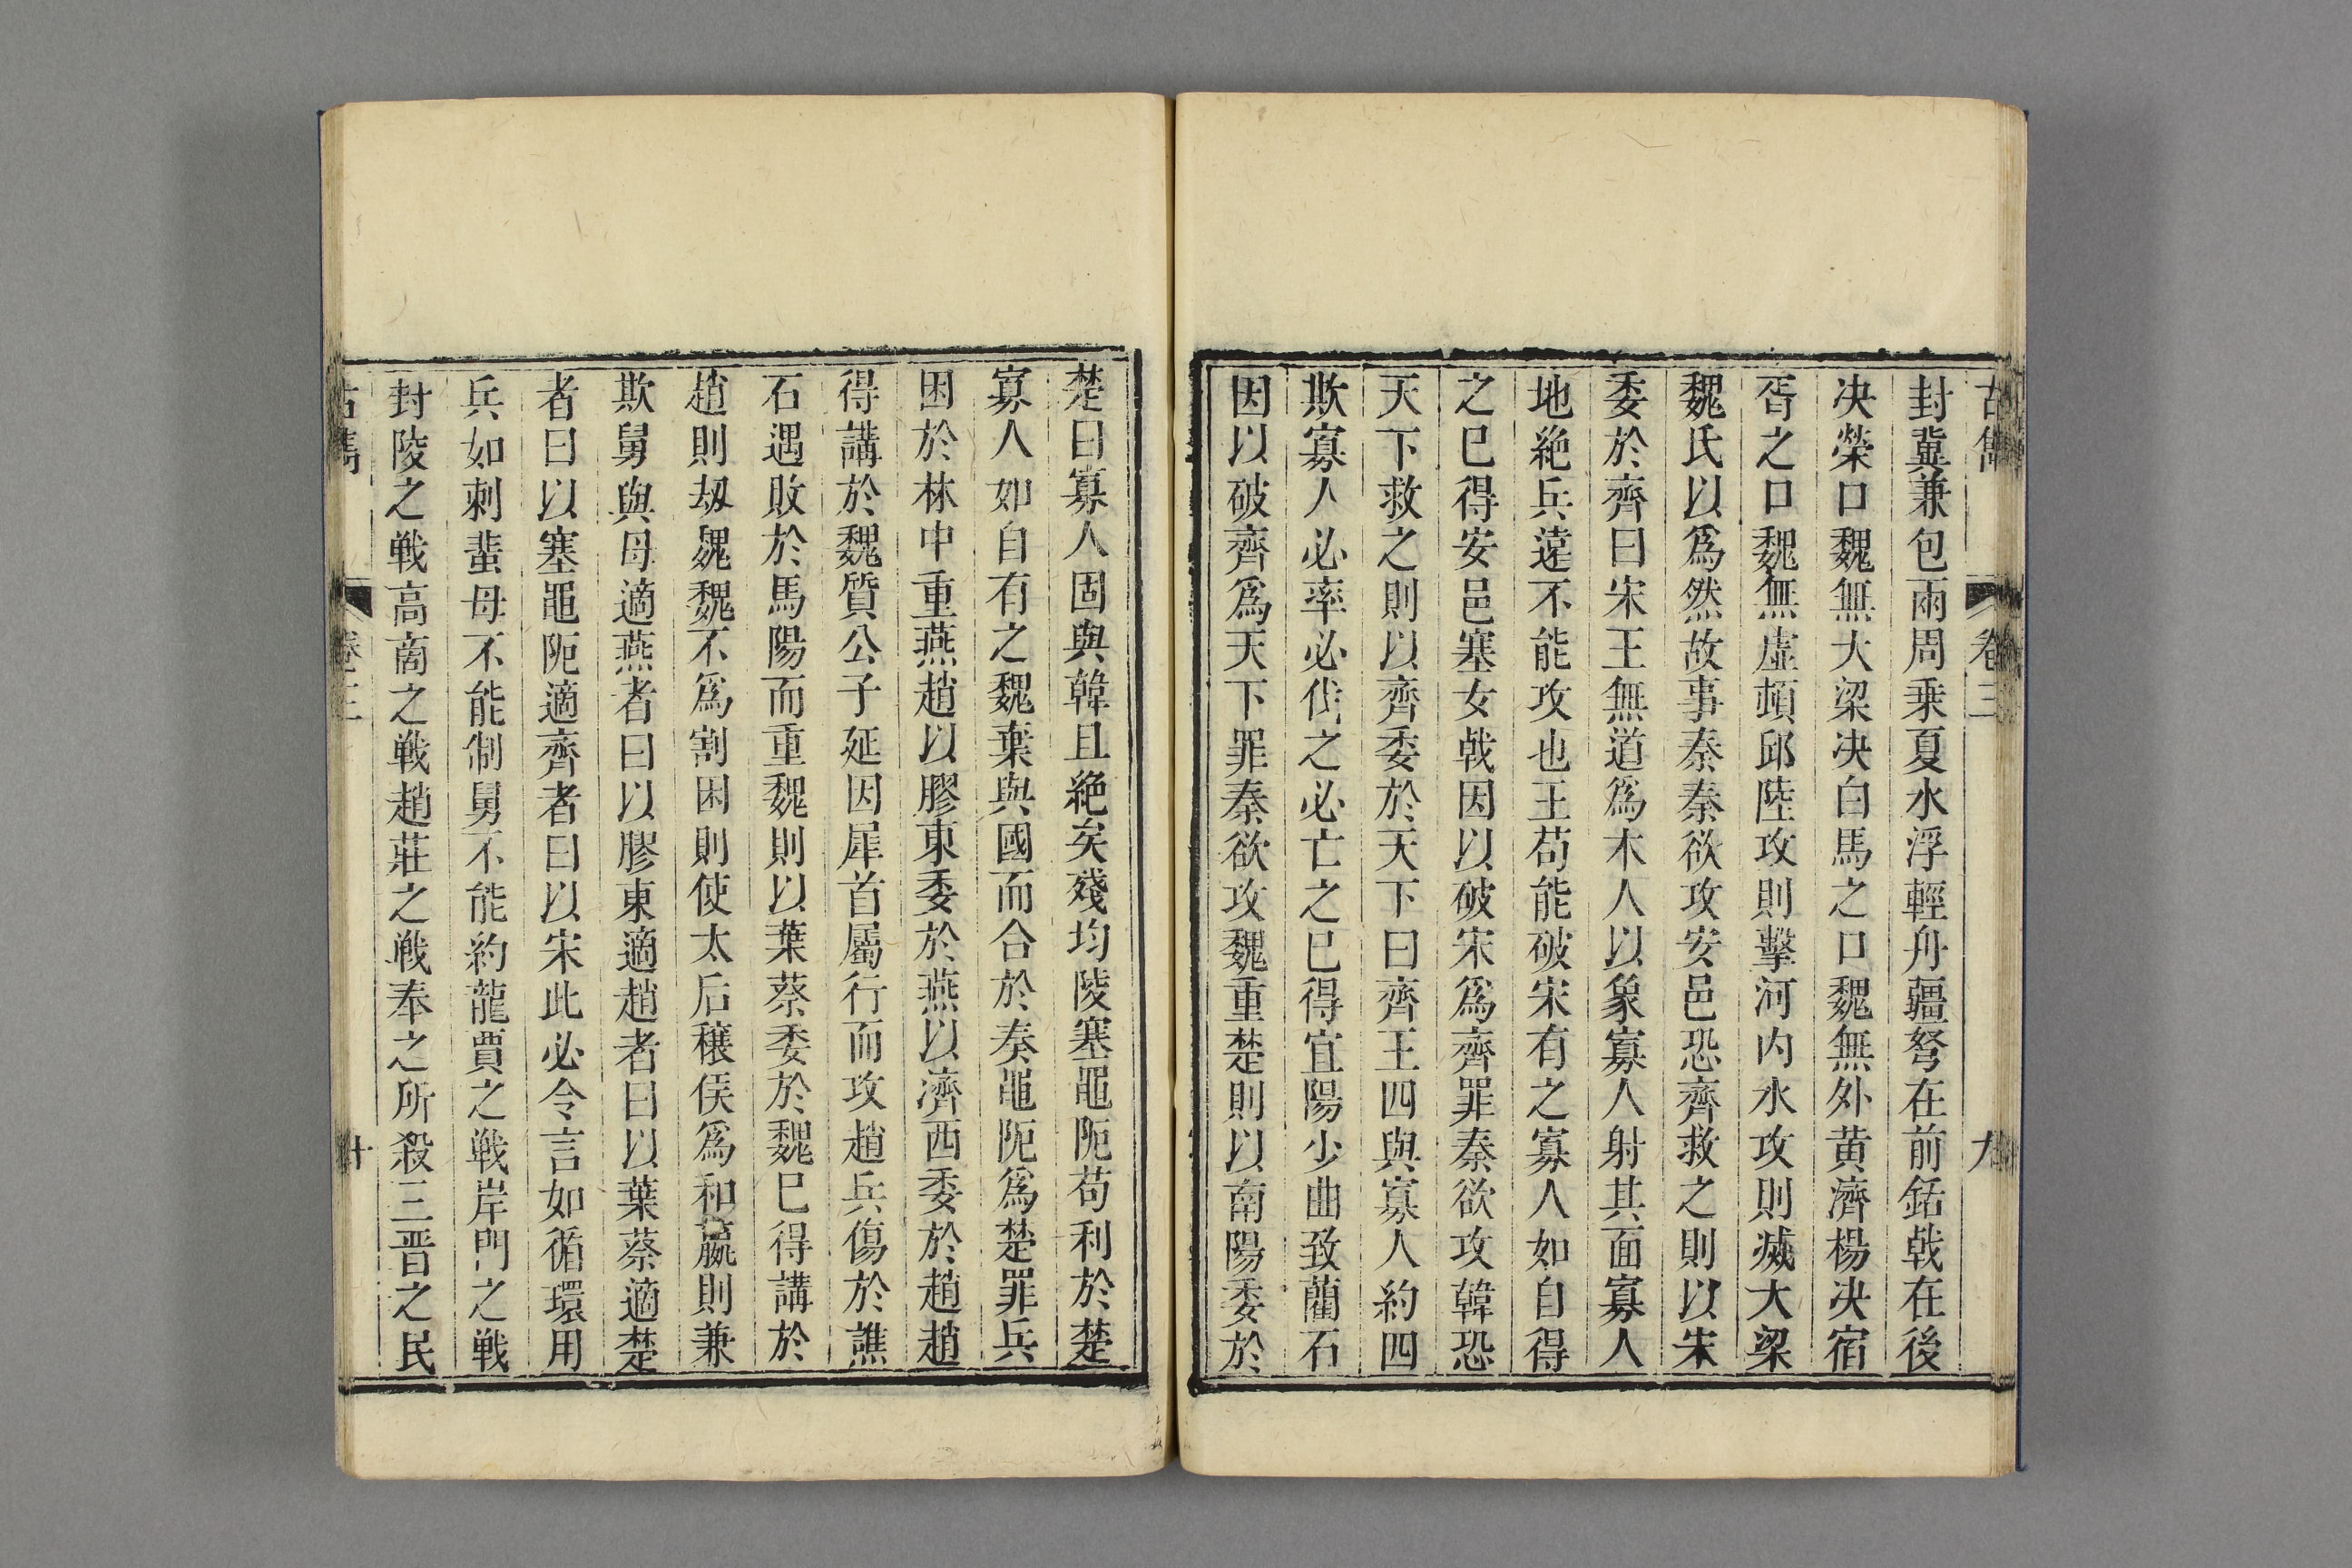 古雋 卷三 九
封冀兼包兩周乗夏水浮輕舟疆弩在前銛戟在後
决榮口魏無大梁决白馬之口魏無外黄濟楊决宿
胥之口魏無虚頓邱陸攻則擊河内水攻則滅大梁
魏氏以爲然故事秦秦欲攻安邑恐齊救之則以宋
委於齊曰宋王無道爲木人以象寡人射其面寡人
地絶兵遠不能攻也王苟能破宋有之寡人如自得
之已得安邑塞女戟因以破宋爲齊罪秦欲攻韓恐
天下救之則以齊委於天下曰齊王四與寡人約四
欺寡人必率必伐之必亡之已得宜陽少曲致藺石
因以破齊爲天下罪秦欲攻魏重楚則以南陽委於
楚曰寡人固與韓且絶矣殘均陵塞黽阨苟利於楚
寡人如自有之魏棄與國而合於秦黽阨爲楚罪兵
困於林中重燕趙以膠東委於燕以濟西委於趙趙
得講於魏質公子延因犀首屬行而攻趙兵傷於譙
石遇敗於馬陽而重魏則以葉蔡委於魏已得講於
趙則刼魏魏不爲割困則使太后穰侯爲和贏則兼
欺舅與母適燕者曰以膠東適趙者曰以葉蔡適楚
者曰以塞黽阨適齊者曰以宋此必令言如循環用
兵如刺蜚母不能制舅不能約龍賈之戦岸門之戦
封陵之戦高商之戦趙莊之戦奉之所殺三晋之民
古雋 卷三 十